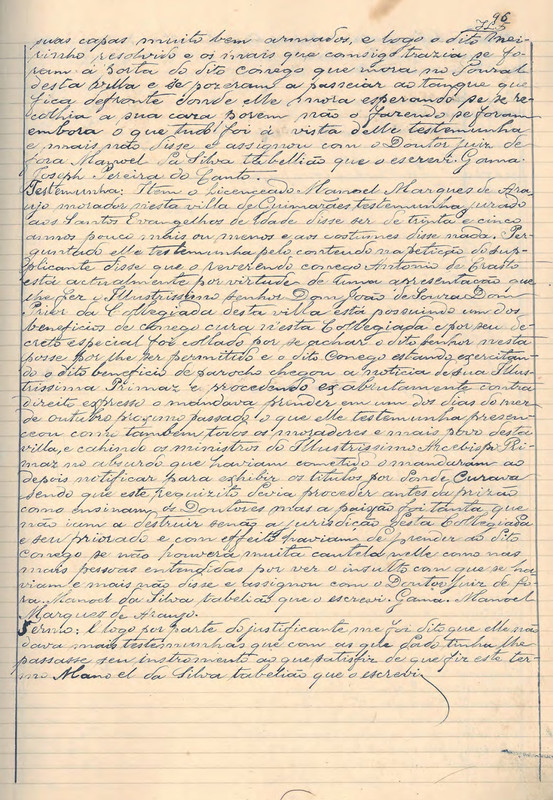 96
suas capas muito bem armados, e logo o dito Mei-
rinho resolvido e os mais que comsigo trazia se fo-
ram á porta do dito conego que mora no Toural
desta villa e se pozeram a passeiar ao tanque que
fica defronte donde elle mora esperando pe se re-
colhia a sua caza porem não o fazendo se foram
embora o que tudo foi á vista delle testemunha
e mais não disse e assignou com o Doutor juiz de
fora Manoel da Silva tabellião que o escrevi. Gama.
Joseph Pereira do Canto.
Testemunha: Item o Licenceado Manoel Marques de Ara-
ujo morador n'esta villa de Guimarães, testemunha jurado
aos Santos Evangelhos de idade disse ser de trinta e cinco
annos pouco mais ou menos e aos costumes disse nada. Per-
guntado elle testemunha pelo contendo na petição do sup-
plicante disse que o reverendo conego Antonio de
está actualmente por virtude de uma apresentação que
lhe fez o Illustrissimo Senhor Dom João de Souza Dom
Prior da Collegiada desta villa está possuindo um dos
beneficios de conego cura n'esta Collegiada e por seu de-
creto especial foi collado por se achar o dito senhor nesta
posse por lhe ser permitido e o dito Conego estando exercitan-
do o dito beneficio de parocho chegou a noticia de sua Illus-
trissima Primaz e procedendo ex abrutamente contra
direito expresso o mandava prender em um dos dias do mez
de outubro proximo passado o que elle testemunha presen-
ceou como tambem todos os moradores e mais povo desta
villa, e cahindo os ministros do Illustrissimo Arcebispo Pri-
maz no absurdo que haviam cometido o mandaram ao
depois notificar para exhibir os titulos por donde Curava
sendo que este requizito devia proceder antes da prizão
como ensinam os Doutores mas a paixão foi tanta que
não iam a destruir senão a jurisdição desta Collegiada
e seu priorado e com effeito haviam de prender ao dito
Conego se não houvera muita cautela nelle como nas
mais pessoas entendidas por ver o insulto com que se ha-
viam e mais não disse e assignou com o Doutor juiz de fo-
ra. Manoel da Silva tabelião que o escrevi. Gama. Manoel
Marques de Araujo.
Termo: E logo por parte do justificante me foi dito que elle não
dava mais testemunhas que com as que dado tinha lhe
passasse seu instromento ao que satisfiz de que fiz este ter-
mo Manoel da Silva tabelião que o escrevi